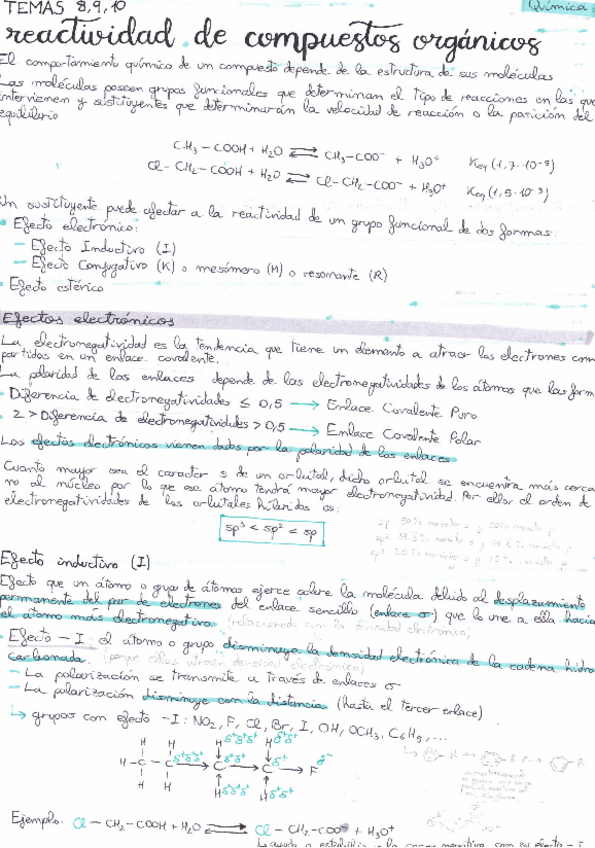 TEMAS 8,9,10
Química
reactividad de compuestos orgánicos
El comportamiento químico de un compuesto depende de la estructura de sus moléculas
Las moléculas poseen grupos funcionales que determinan el tipo de reacciones en las que
intervienen y sustituyentes que determinarán la velocidad de reacción o la posición del
equilibrio
CH₃ – COOH + H₂O ⇌ CH₃-COO⁻ + H₃O⁺ Keq (1,7·10⁻⁵)
Cl – CH₂ – COOH + H₂O ⇌ Cl-CH₂-COO⁻ + H₃O⁺ Keq (1,5·10⁻³)
Un sustituyente puede afectar a la reactividad de un grupo funcional de dos formas:
• Efecto electrónico:
– Efecto Inductivo (I)
– Efecto Conjugativo (K) o mesómero (M) o resonante (R)
• Efecto estérico
Efectos electrónicos
La electronegatividad es la tendencia que tiene un elemento a atraer los electrones com
partidos en un enlace covalente.
La polaridad de los enlaces depende de las electronegatividades de los átomos que los form
• Diferencia de electronegatividades ≤ 0,5 → Enlace Covalente Puro
• 2 > Diferencia de electronegatividades > 0,5 → Enlace Covalente Polar
Los efectos electrónicos vienen dados por la polaridad de los enlaces
Cuanto mayor sea el caracter s de un orbital, dicho orbital se encuentra más cerca
no al núcleo por lo que ese átomo tendrá mayor electronegatividad. Por ello, el orden de
electronegatividades de los orbitales híbridos es:
sp³ < sp² < sp
sp: 50% caracter s y 50% caracter p
Efecto inductivo (I)
Efecto que un átomo o grupo de átomos ejerce sobre la molécula debido al desplazamiento
permanente del par de electrones del enlace sencillo (enlace σ) que lo une a ella hacia
el átomo más electronegativo. (relacionado con la densidad electrónica)
• Efecto – I: el átomo o grupo disminuye la densidad electrónica de la cadena hidro
carbonada. (porque ellos atraen densidad electrónica)
– La polarización se transmite a través de enlaces σ
– La polarización disminuye con la distancia (hasta el tercer enlace)
↳ grupos con efecto –I: NO₂, F, Cl, Br, I, OH, OCH₃, C₆H₅, ...
H H Hδ⁺δ⁺δ⁺ Hδ⁺δ⁺
H – C – C → C → C → F
H H Hδ⁺δ⁺δ⁺ Hδ⁺δ⁺
Ejemplo: Cl – CH₂ – COOH + H₂O ⇌ Cl – CH₂ – COO⁻ + H₃O⁺